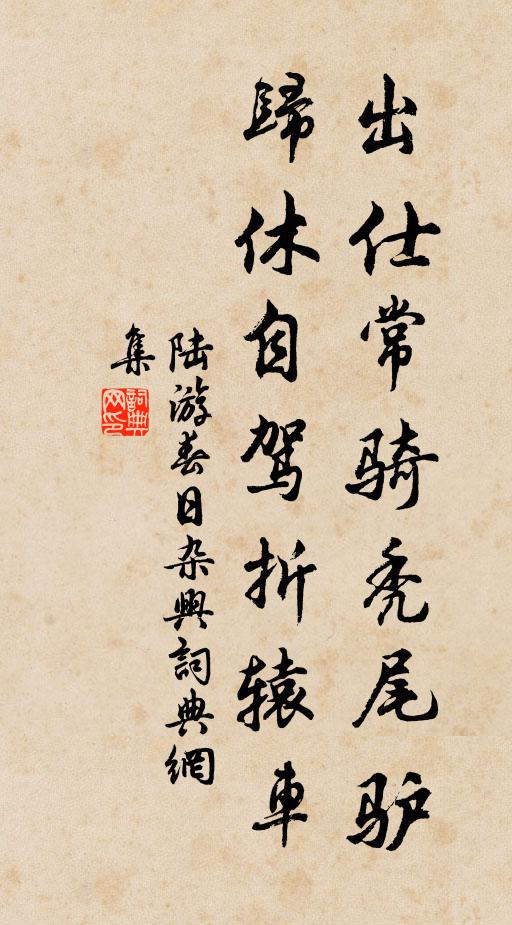 出仕常骑秃尾驴
歸休自駕折辕車
陆游春日杂興詞典網
集
詞典网印